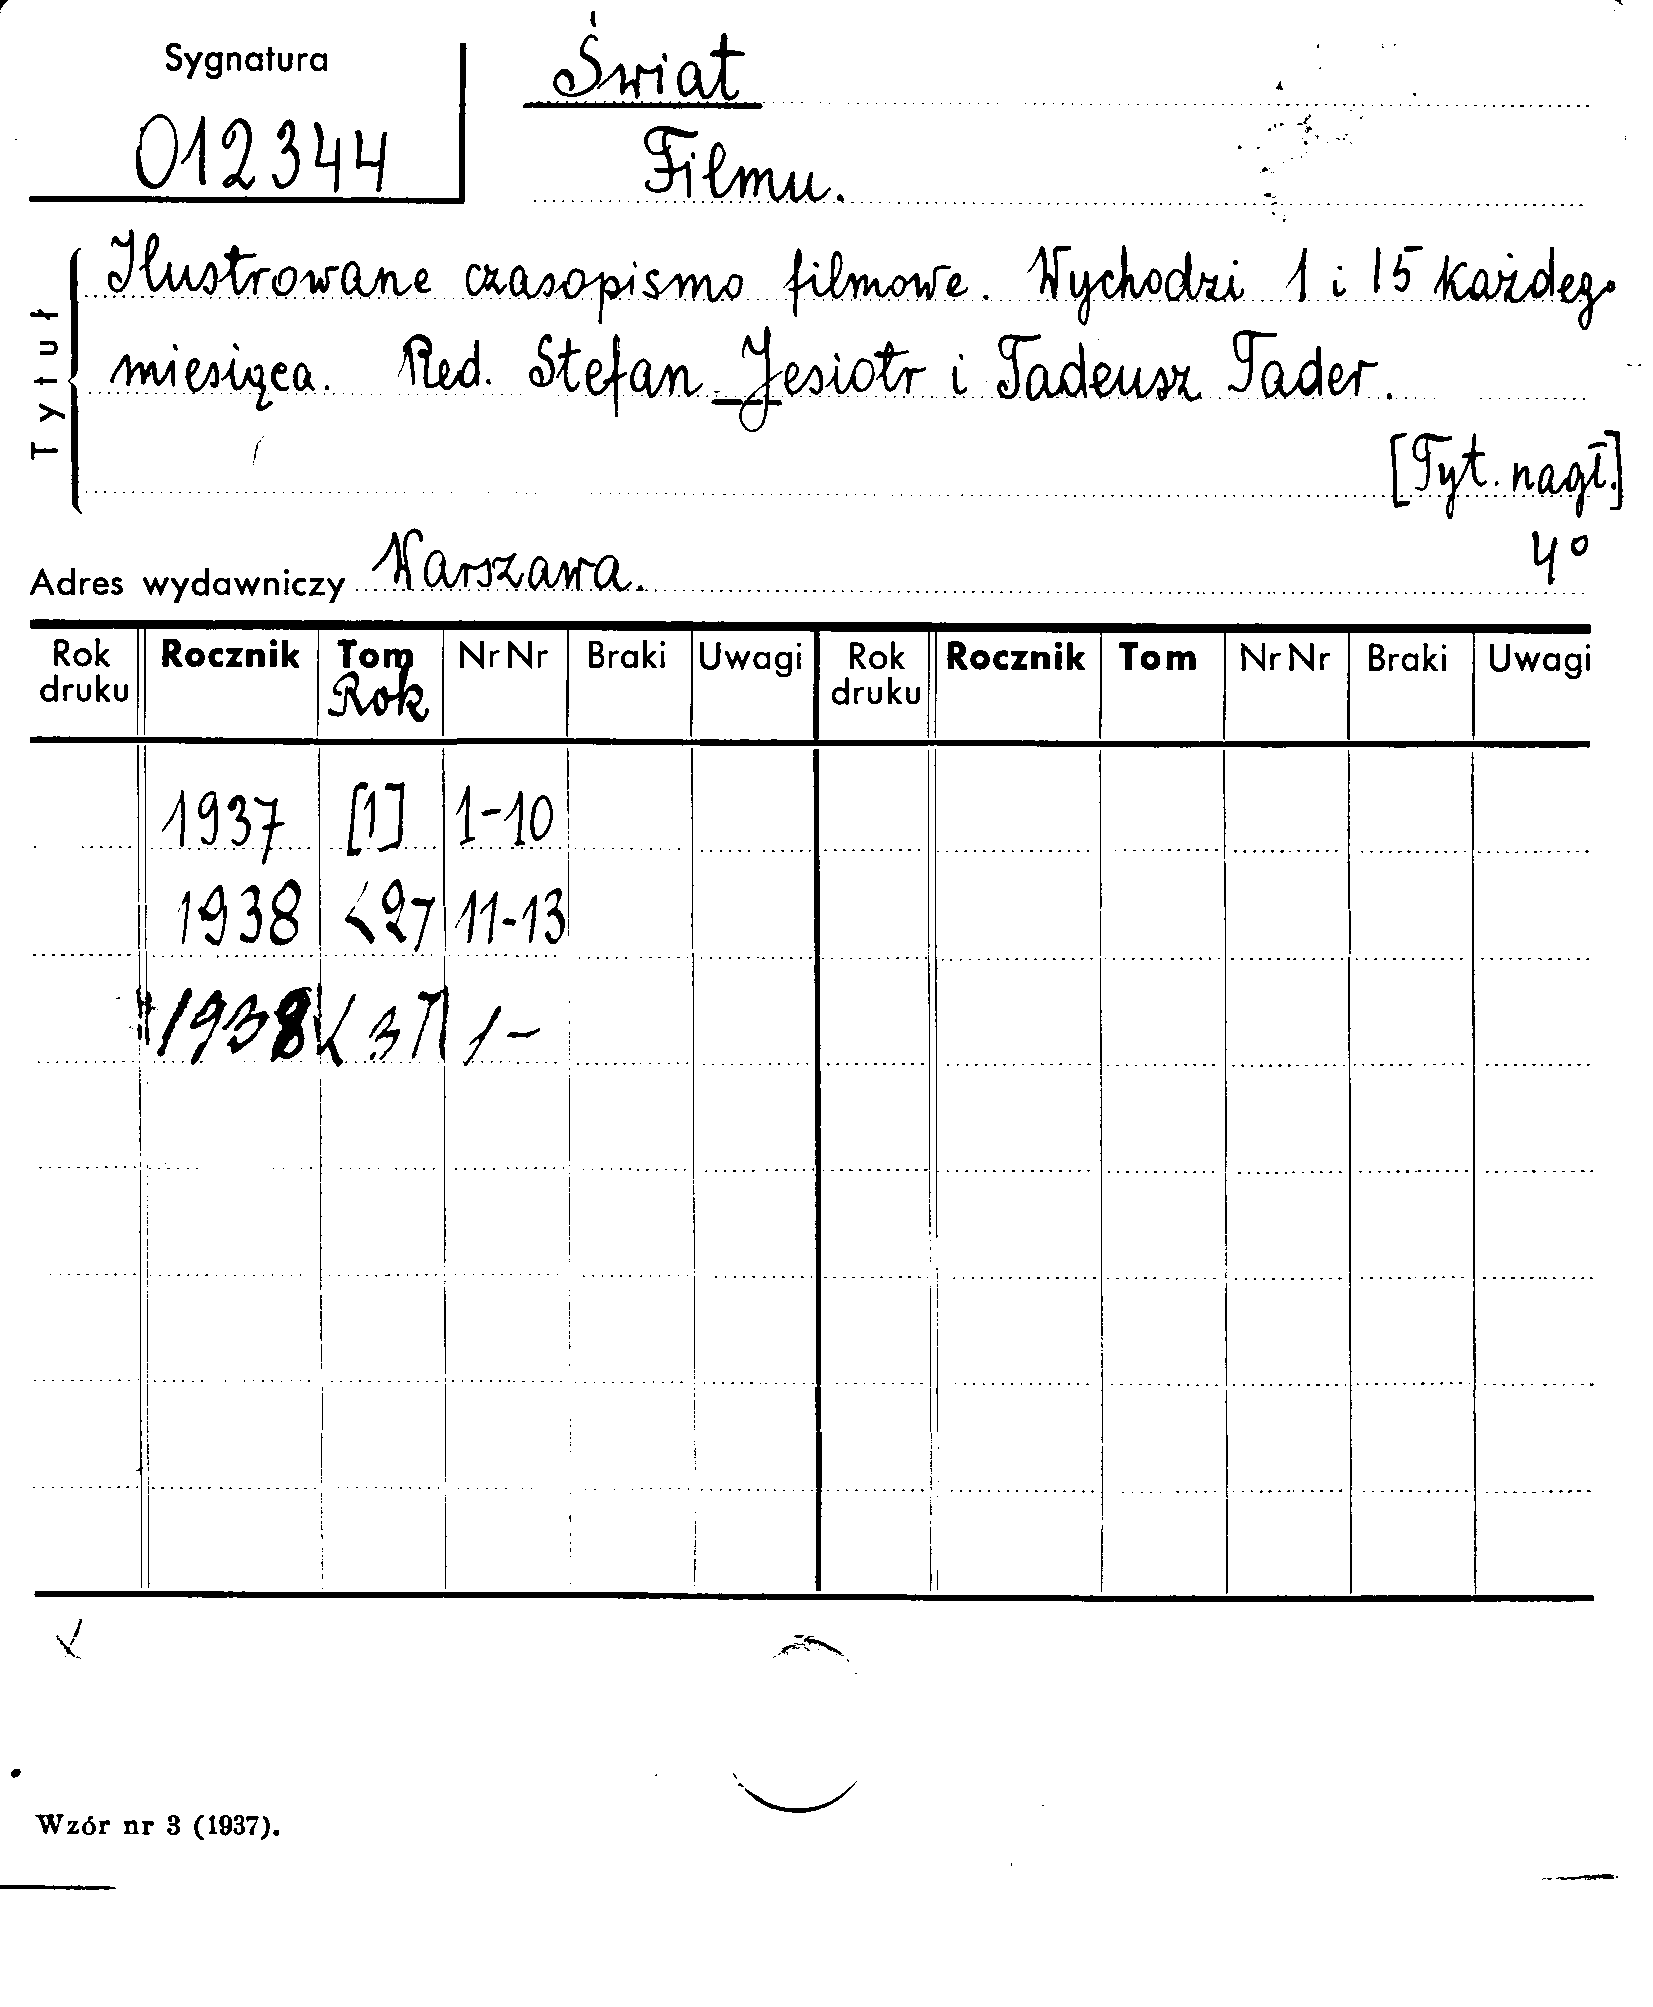 Sygnatura
012344
Świat
Filmu.
Tytuł
Ilustrowane czasopismo filmowe. Wychodzi 1 i 15 każdego
miesiąca. Red. Stefan Jesiotr i Tadeusz Tader.
[Tyt. nagł.]
4°
Adres wydawniczy Warszawa.
Rok druku Rocznik Tom Rok Nr Nr Braki Uwagi Rok druku Rocznik Tom Nr Nr Braki Uwagi
1937 [1] 1-10
1938 <2> 11-13
1938 <3> 1-
Wzór nr 3 (1937).